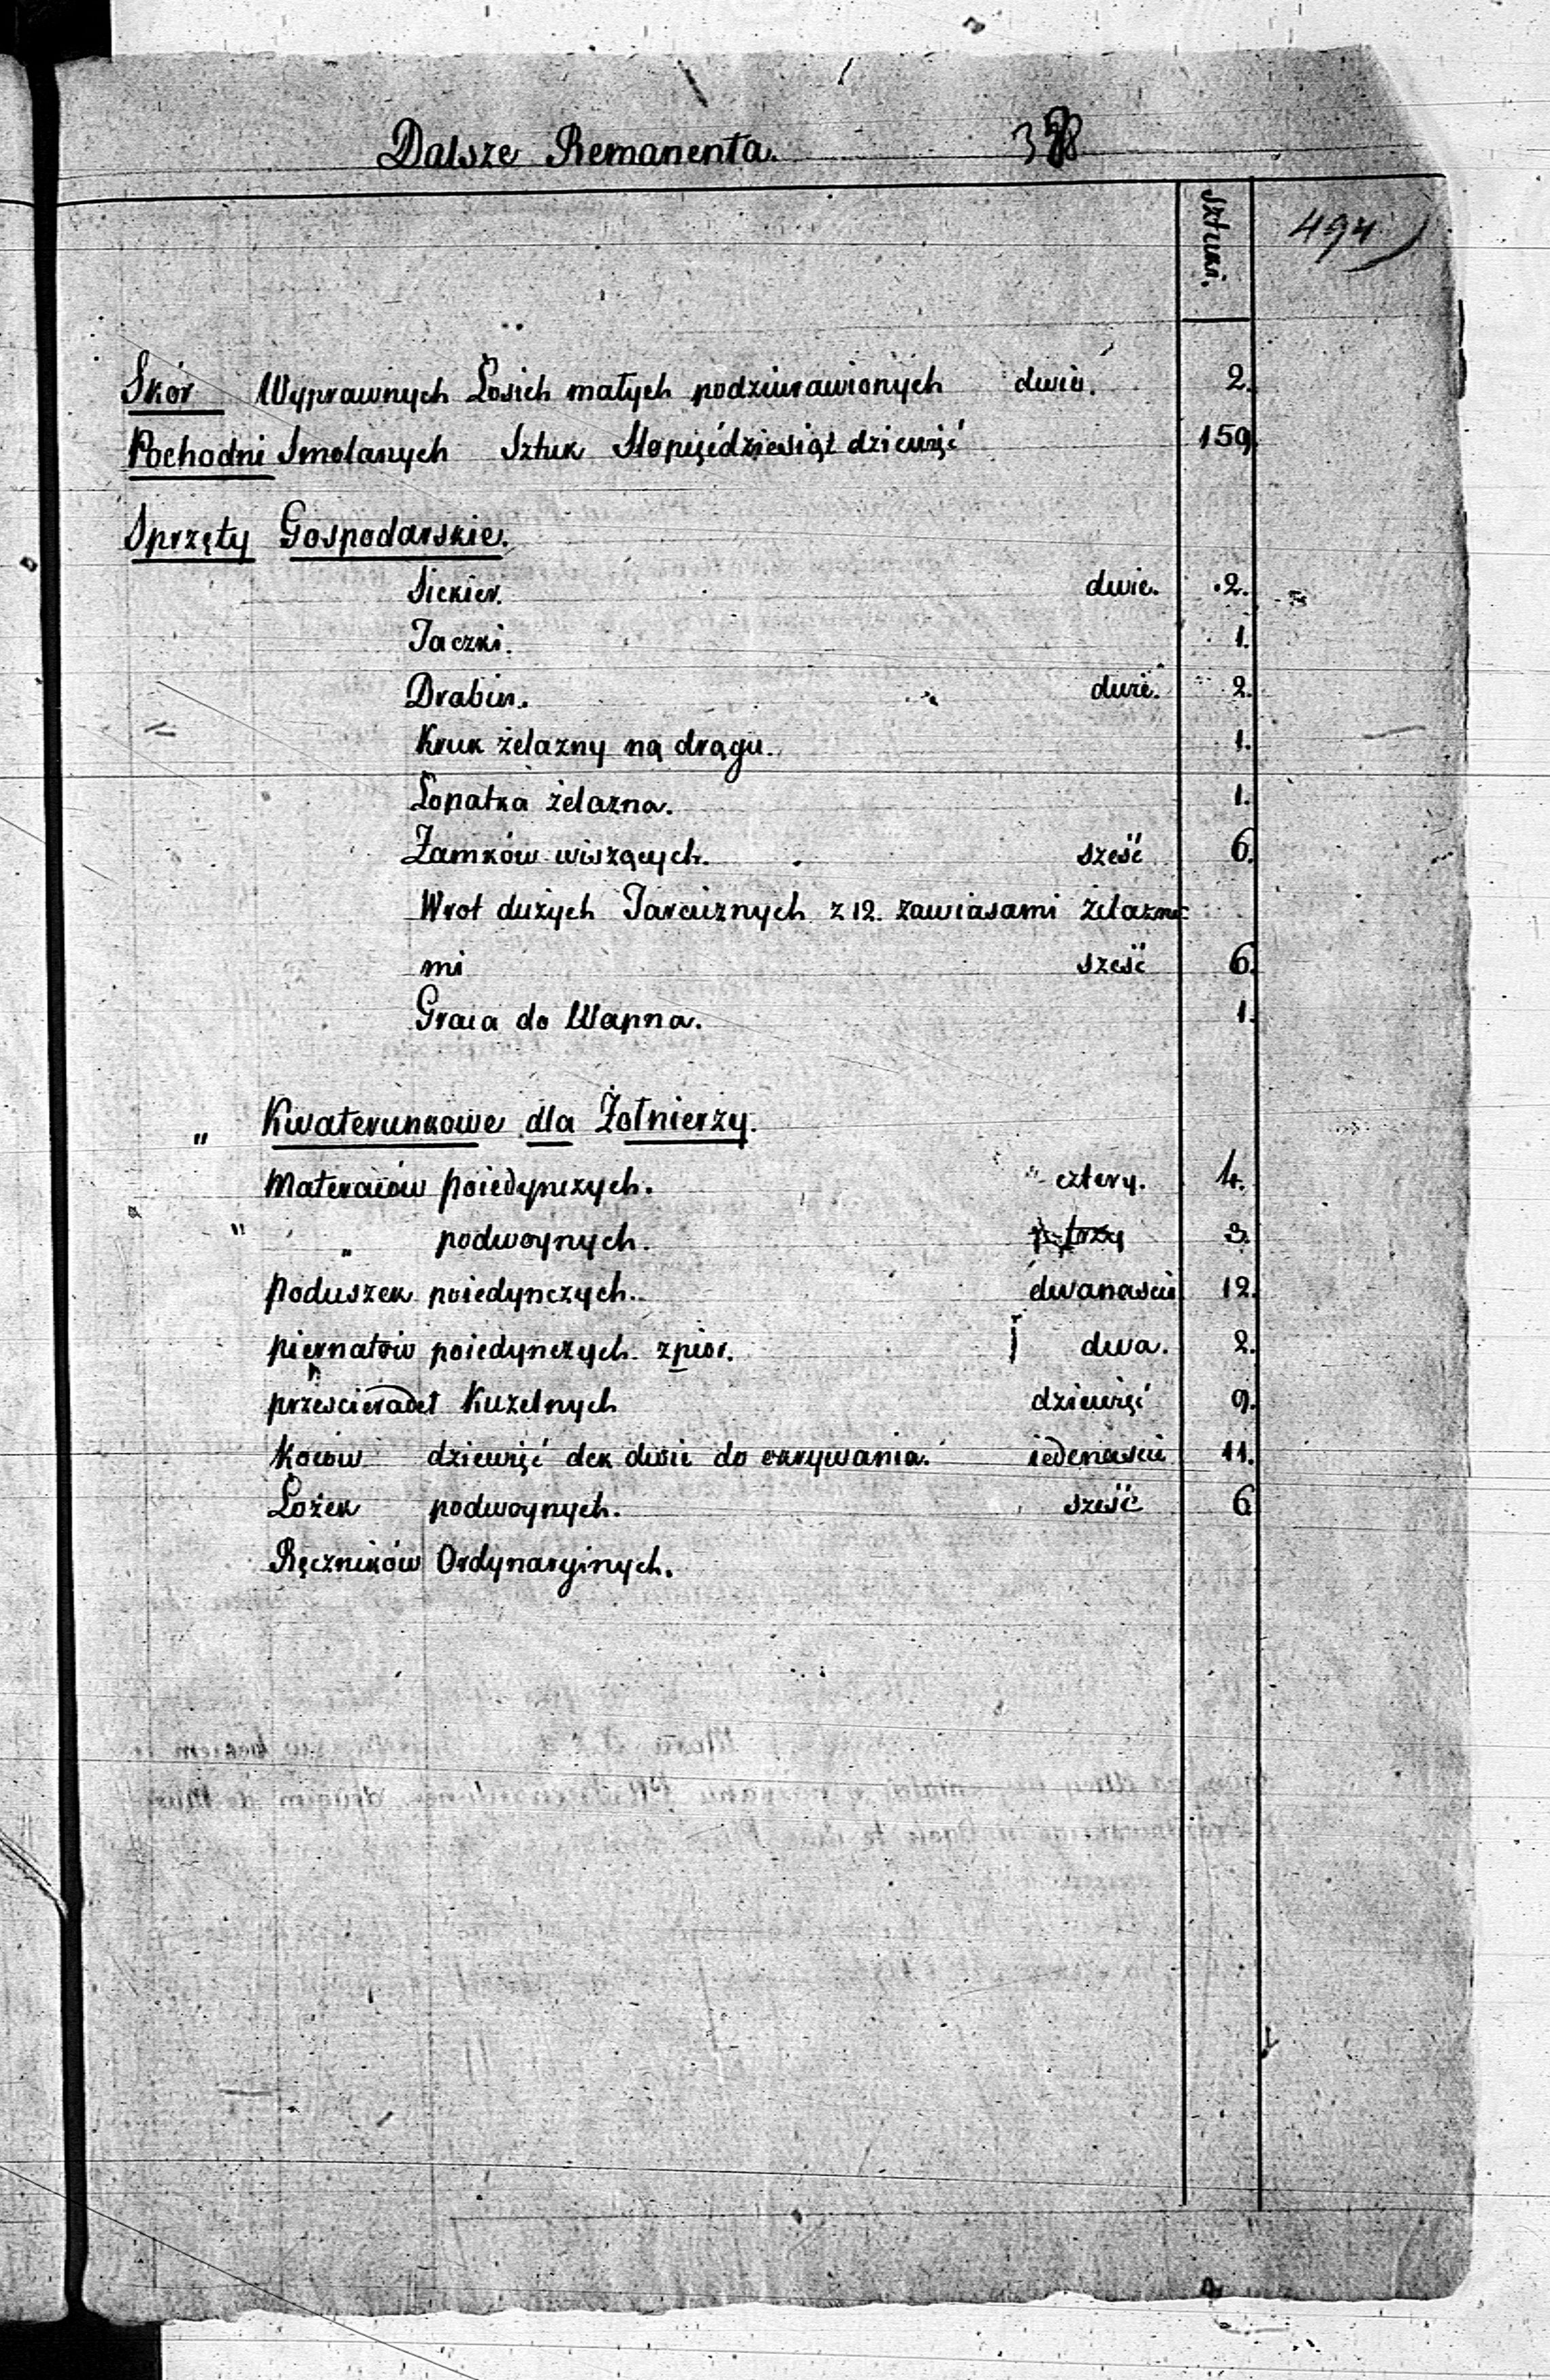 Dalsze Remanenta.
Sztuki.
494
Skór Wyprawnych Łosich małych podziurawionych dwie. 2.
Pochodni Smolanych Sztuk Stopięćdziesiąt dziewięć 159.
Sprzęty Gospodarskie.
Siekier. dwie. 2.
Taczki. 1.
Drabin. dwie. 2.
Kruk żelazny na drągu. 1.
Łopatka żelazna. 1.
Zamków wiszących. sześć 6.
Wrot dużych Tarcicznych z 12. zawiasami żelazne
mi sześć 6.
Graca do Wapna. 1.
" Kwaterunkowe dla Żołnierzy.
Materaców poiedynczych. cztery. 4.
" " podwoynych. trzy 3.
Poduszek poiedynczych. dwanaście 12.
piernatów poiedynczych z pior. dwa. 2.
prześcieradeł Kuzelnych dziewięć 9.
Koców dziewięć dek dwie do okrywania. iedenaście 11.
Łożek podwoynych. sześć 6
Ręczników Ordynaryinych.